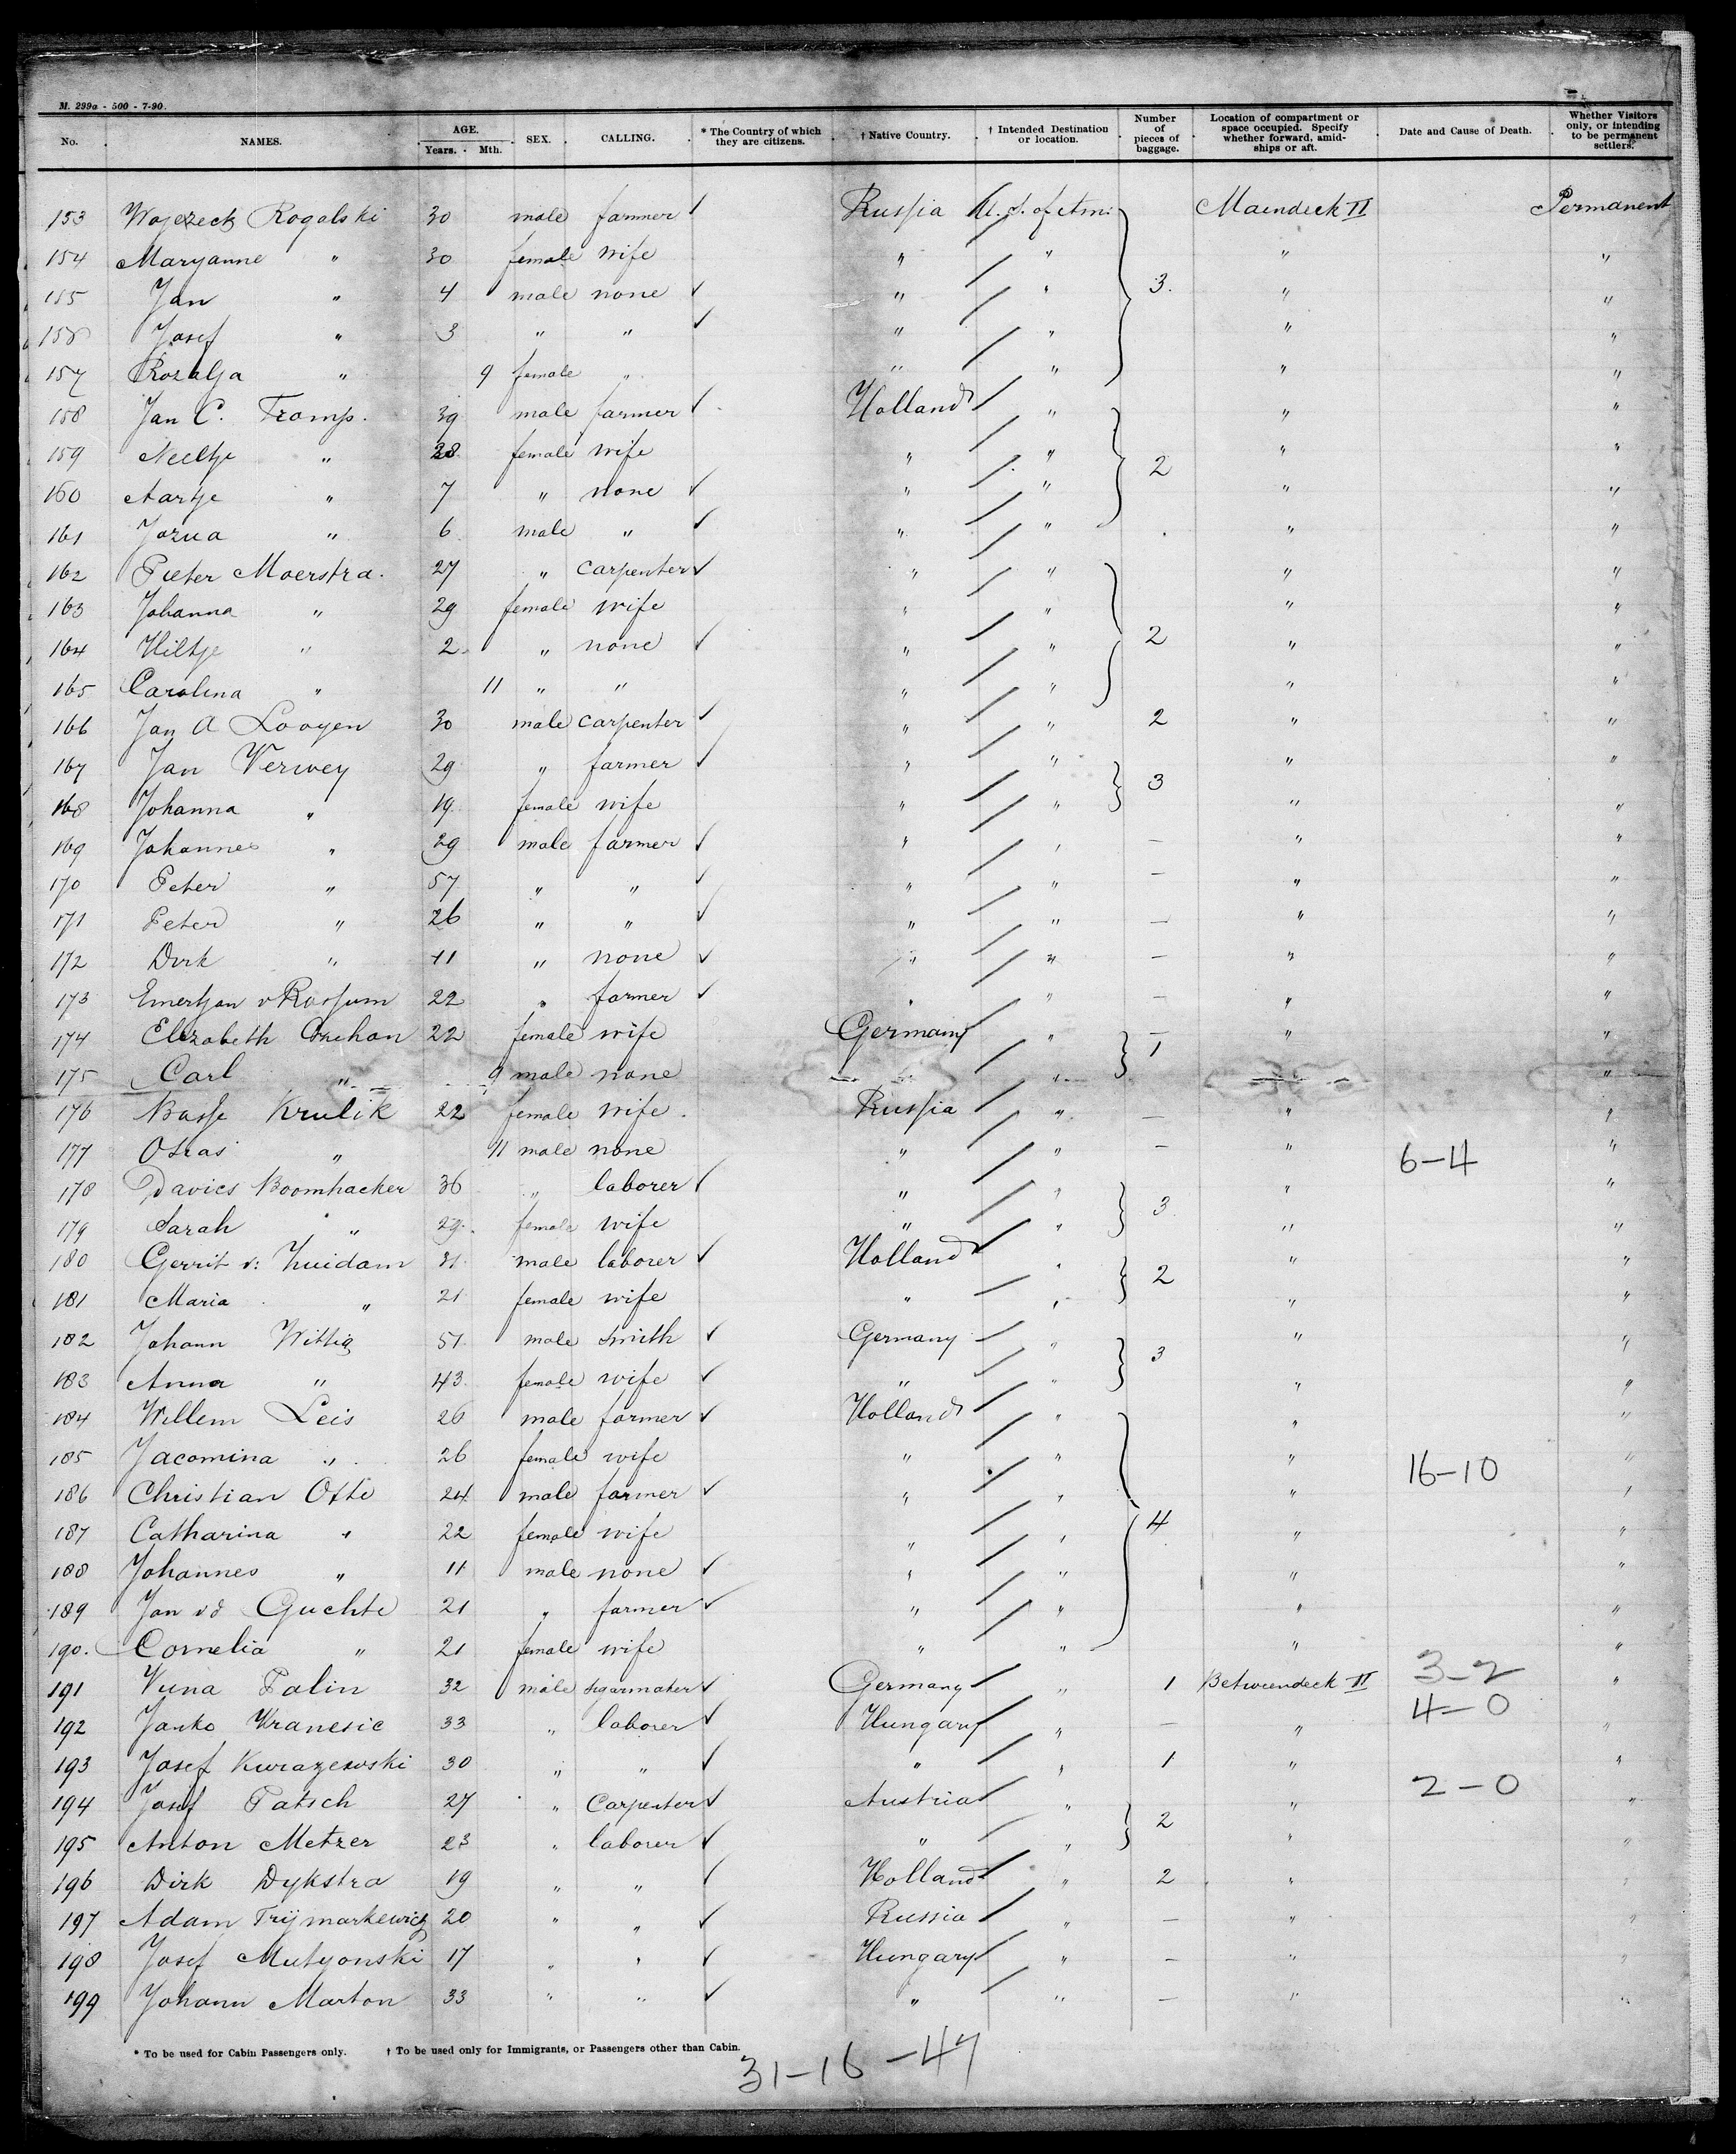 M. 299a - 500 - 7-90.
No. NAMES. AGE. Years. Mth. SEX. CALLING. * The Country of which they are citizens. † Native Country. † Intended Destination or location. Number of pieces of baggage. Location of compartment or space occupied. Specify whether forward, amidships or aft. Date and Cause of Death. Whether Visitors only, or intending to be permanent settlers.
153 Wojezeck Rogalski 30 male farmer Russia U. S. of Am: Maindeck II Permanent
154 Maryanne " 30 female wife " " " "
155 Jan " 4 male none " " 3. " "
156 Josef " 3 " " " " " "
157 Rozalja " 9 female " " " " "
158 Jan C. Tromp. 39 male farmer Holland " " "
159 Neeltje " 28 female wife " " 2 " "
160 Aartje " 7 " none " " " "
161 Jozua " 6 male " " " " "
162 Pieter Moerstra. 27 " carpenter " " " "
163 Johanna " 29 female wife " " " "
164 Hiltje " 2 " none " " 2 " "
165 Carolina " 11 " " " " " "
166 Jan A Looyen 30 male carpenter " " 2 " "
167 Jan Verwey 29 " farmer " " 3 " "
168 Johanna " 19 female wife " " " "
169 Johannes " 29 male farmer " " — " "
170 Peter " 57 " " " " — " "
171 Peter " 26 " " " " — " "
172 Dirk " 11 " none " " — " "
173 Emertjan v Rossum 22 " farmer " " — " "
174 Elizabeth 22 female wife Germany " — " "
175 Carl " 9 male none " " 1 " "
176 Krulik 22 female wife. Russia " — " "
177 Osias " 11 male none " " — " 6-4 "
178 Davies Boomhacker 36 " laborer " " " "
179 Sarah " 29 female wife " " 3 " "
180 Gerrit v: Zuidam 31 male laborer Holland " " "
181 Maria " 21 female wife " " 2 " "
182 Johann Wittig 51 male smith Germany " " "
183 Anna " 43 female wife " " 3 " "
184 Willem Leis 26 male farmer Holland " " "
185 Jacomina " 26 female wife " " " 16-10 "
186 Christian Otte 24 male farmer " " " "
187 Catharina " 22 female wife " " 4 " "
188 Johannes " 11 male none " " " "
189 Jan vd Guchte 21 " farmer " " " "
190. Cornelia " 21 female wife " " " "
191 Vuna Palin 32 male sigarmaker Germany " 1 Betweendeck II 3-2 "
192 Janko Vranesic 33 " laborer Hungary " — " 4-0 "
193 Josef Kurazewski 30 " " " " 1 " "
194 Josef Patsch 27 " Carpenter Austria " " 2-0 "
195 Anton Metzer 23 " laborer " " 2 " "
196 Dirk Dykstra 19 " " Holland " 2 " "
197 Adam Trijmarkewicz 20 " " Russia " — " "
198 Josef Mutyonski 17 " " Hungary " — " "
199 Johann Marton 33 " " " " — " "
* To be used for Cabin Passengers only. † To be used only for Immigrants, or Passengers other than Cabin.
31-16-47